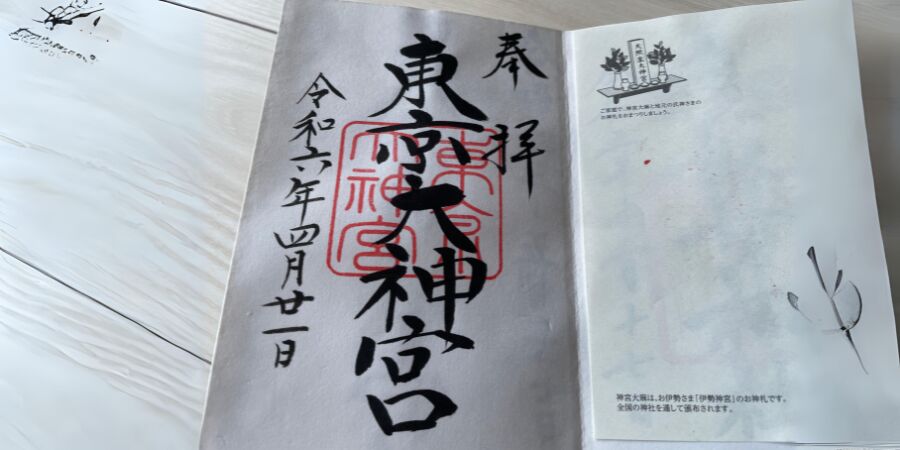 奉拝
東京大神宮
東京大神宮
令和六年四月廿一日
天照皇大神宮
ご家庭で、神宮大麻と地元の氏神さまの
お神札をおまつりしましょう。
神宮大麻は、お伊勢さま「伊勢神宮」のお神札です。
全国の神社を通して頒布されます。